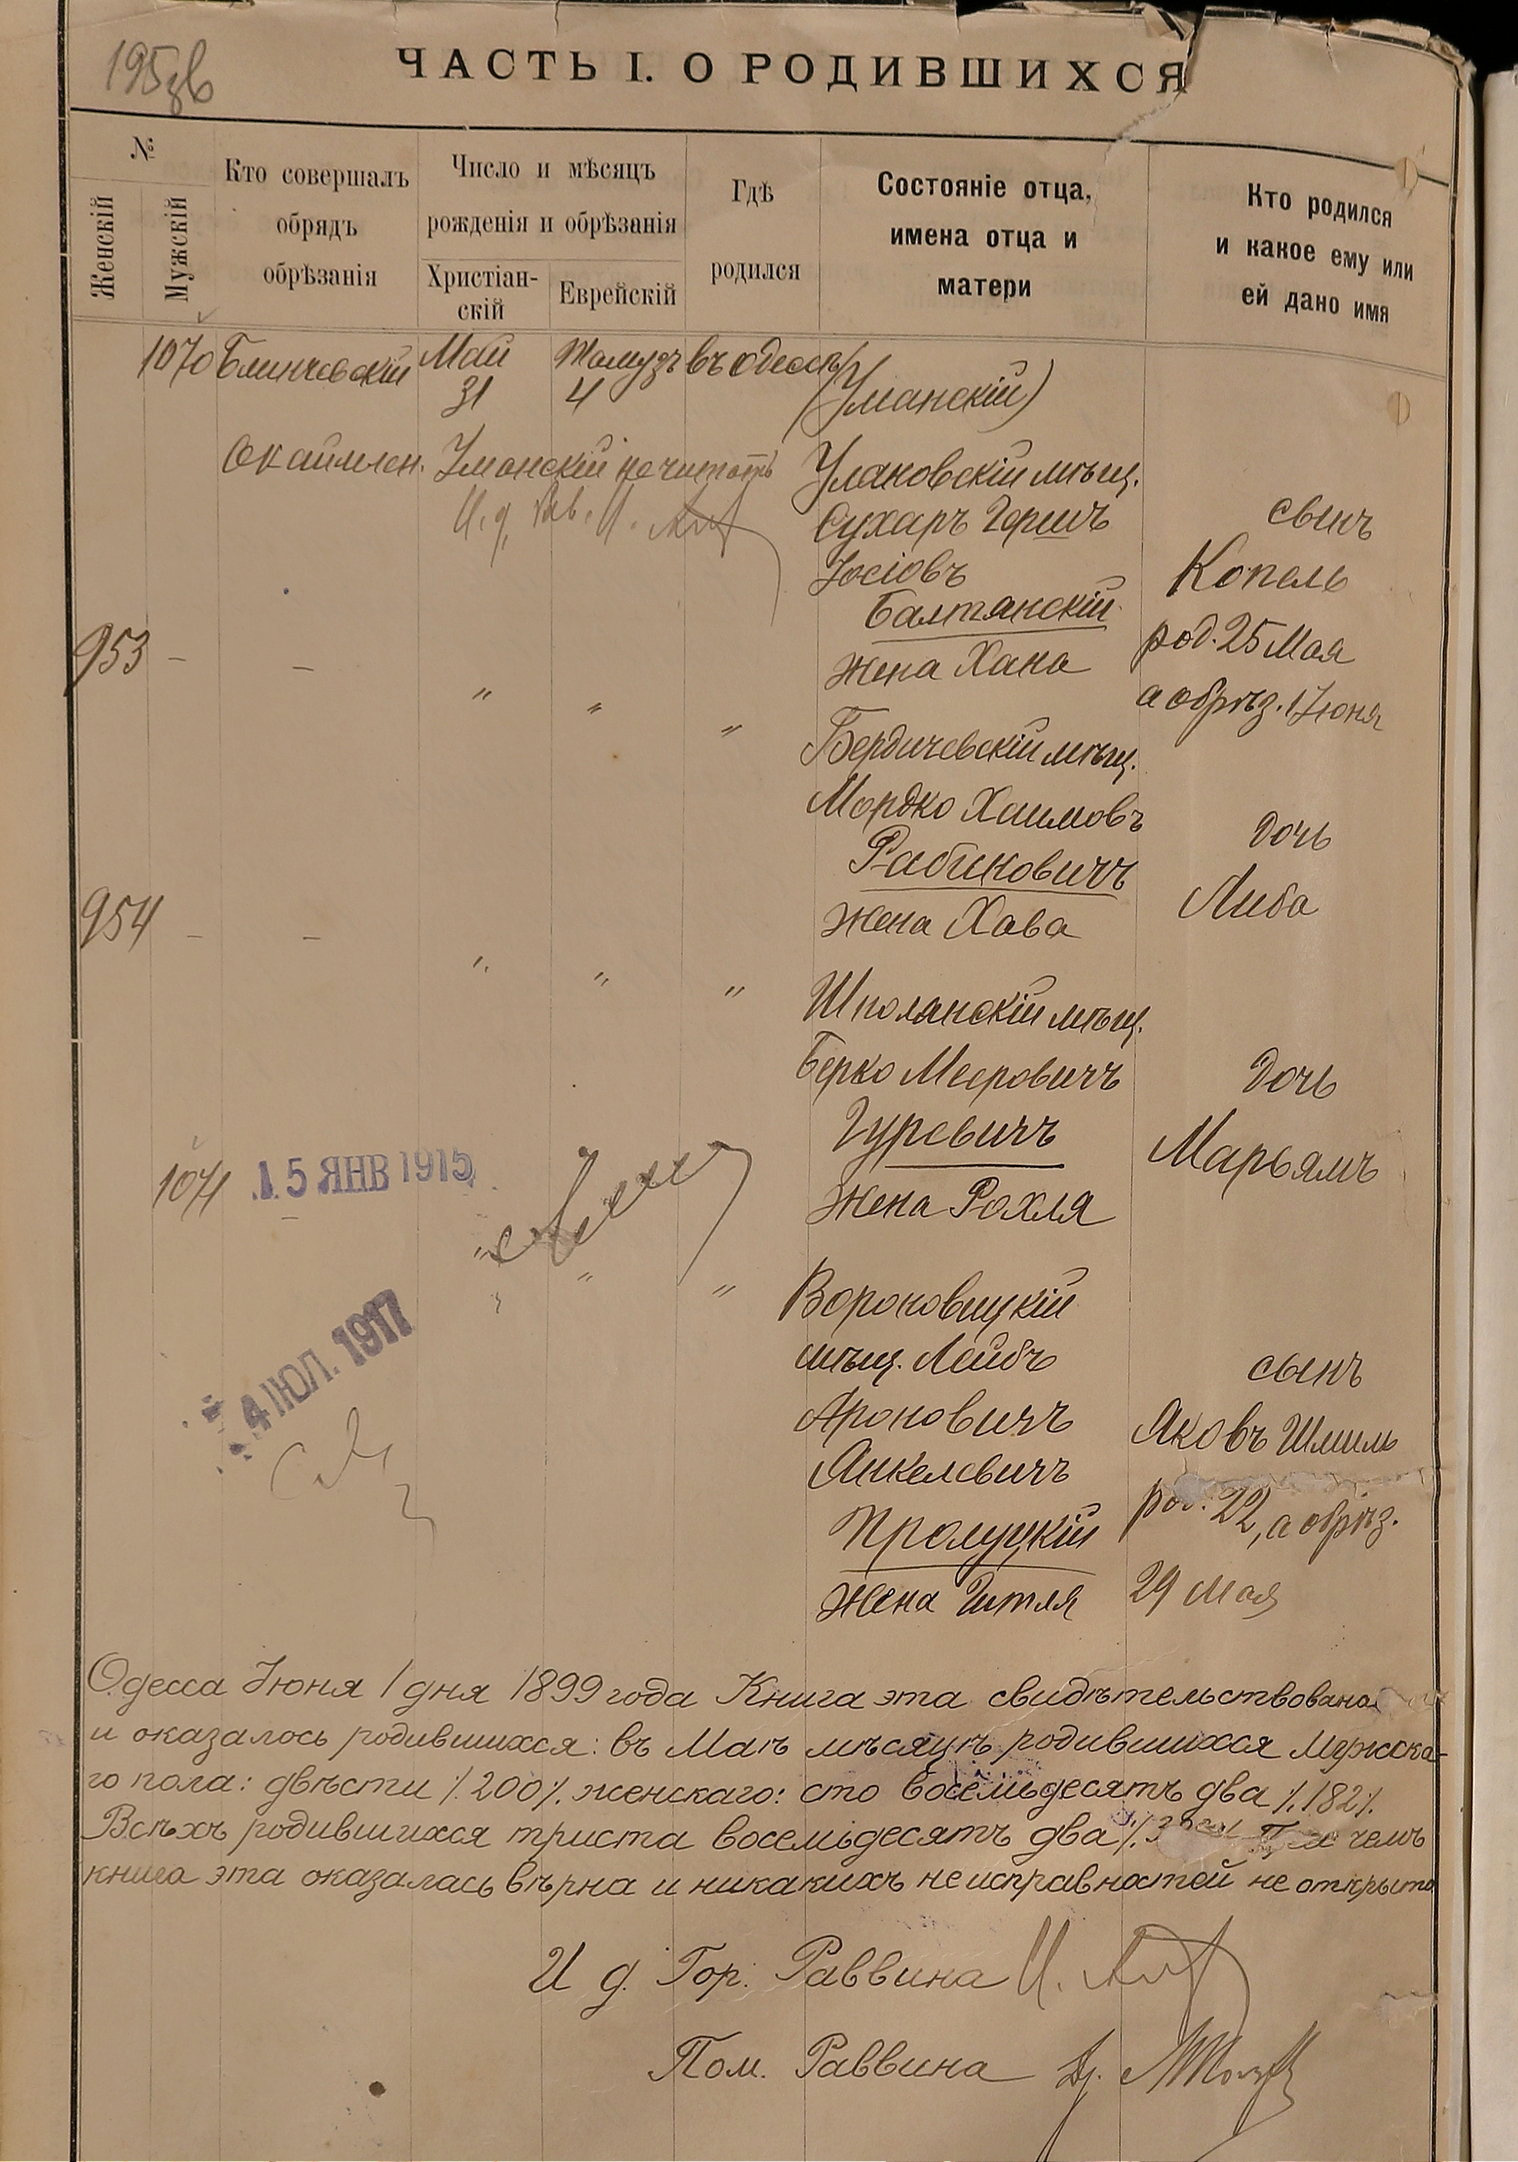 195 об
ЧАСТЬ I. О РОДИВШИХСЯ
№
Женскій
Мужскій
Кто совершалъ
обрядъ
обрѣзанія
Число и мѣсяцъ
рожденія и обрѣзанія
Христіан-
скій
Еврейскій
Гдѣ
родился
Состояніе отца,
имена отца и
матери
Кто родился
и какое ему или
ей дано имя
1070 Блинчевскій Май Тамузъ въ Одессѣ
31 4 (Уманскій)
Уманскій не читать
И. д. Рав. И.
Улановскій мѣщ.
Сухаръ Гершъ
Іосіовъ
Балтянскій
жена Хана
сынъ
Копель
род. 25 Мая
а обрѣз. 1 Іюня
953 – – " " "
Бердичевскій мѣщ.
Мордко Хаимовъ
Рабиновичъ
жена Хава
дочь
Либа
954 – – " " "
Шполянскій мѣщ.
Берко Мееровичъ
Гуревичъ
жена Рохля
дочь
Марьямъ
1071 – " " "
15 ЯНВ 1915
4 ІЮЛ. 1917
Вороновицкій
мѣщ. Лейбъ
Ароновичъ
Янкелевичъ
Пролуцкій
жена Гитля
сынъ
Яковъ Шмиль
род. 22, а обрѣз.
29 Мая
Одесса Іюня 1 дня 1899 года Книга эта свидѣтельствована
и оказалось родившихся: въ Маѣ мѣсяцѣ родившихся мужска-
го пола: двѣсти /.200/. женскаго: сто восемьдесятъ два /.182/.
Всѣхъ родившихся триста восемьдесятъ два /. При чемъ
книга эта оказалась вѣрна и никакихъ неисправностей не открыто
И д. Гор. Раввина И.
Пом. Раввина